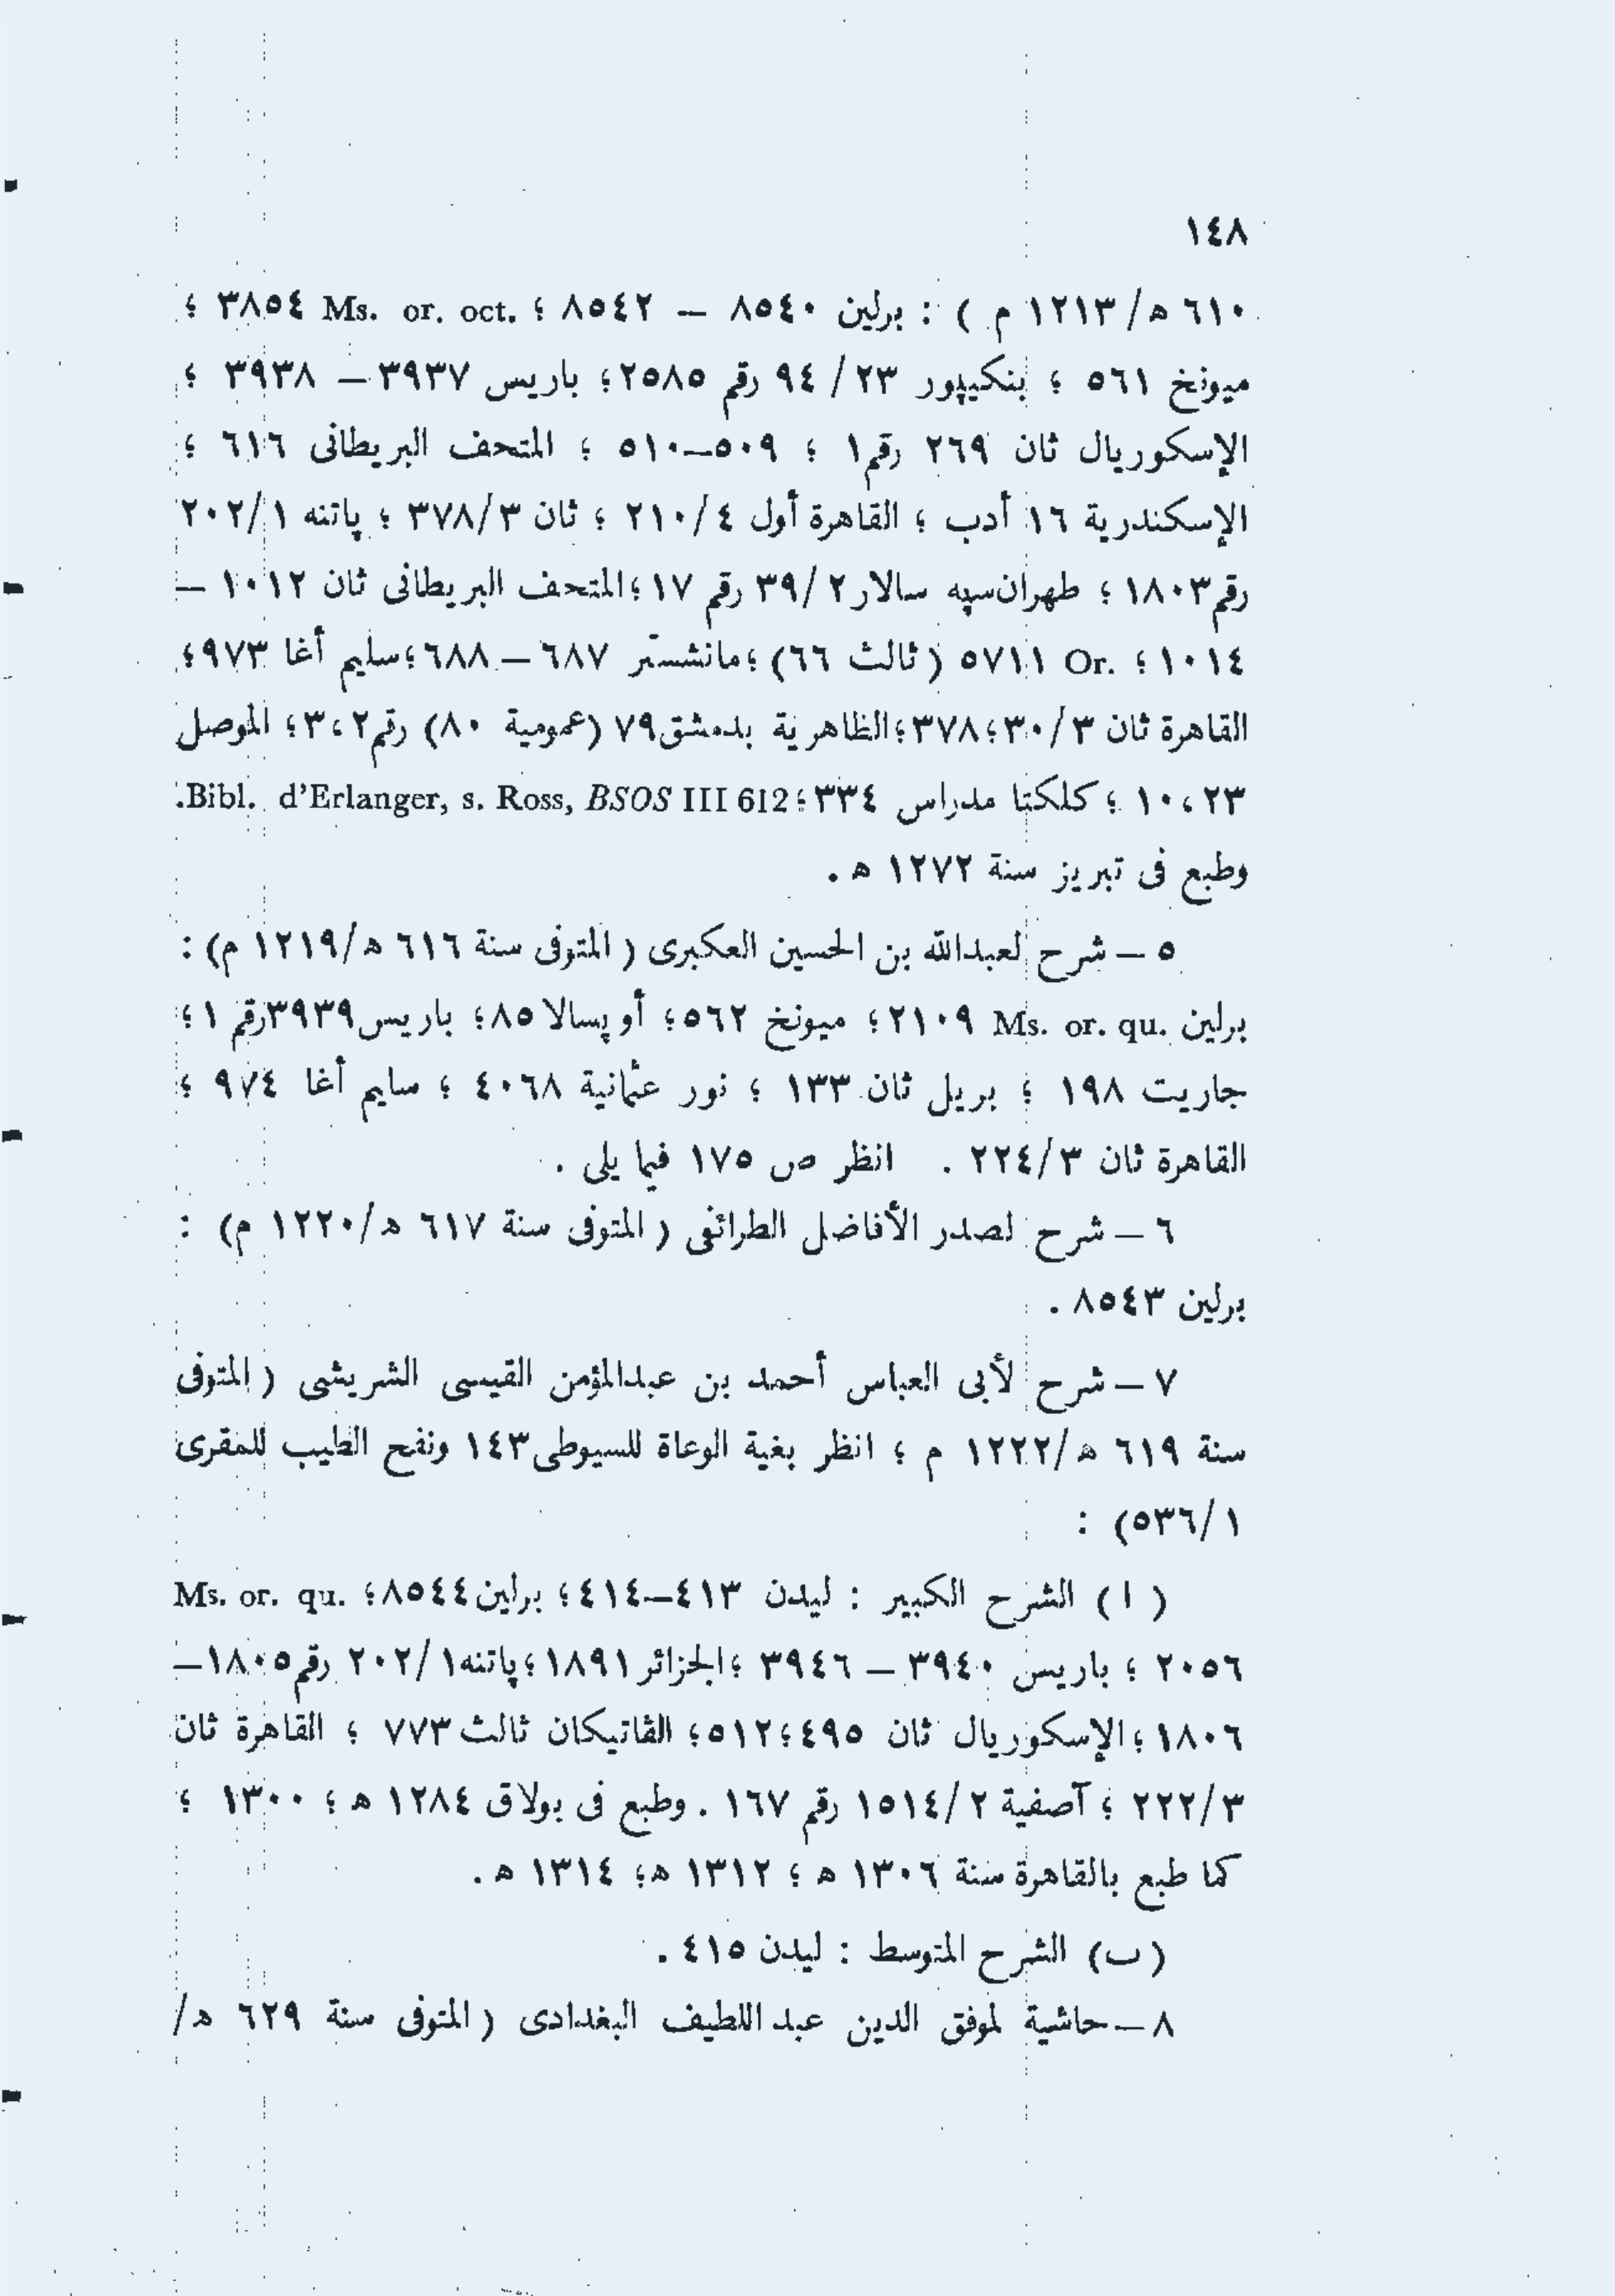 ١٤٨
٦١٠ ه/ ١٢١٣ م ) : برلين ٨٥٤٠ – ٨٥٤٢ ؛ Ms. or. oct. ٣٨٥٤ ؛
ميونخ ٥٦١ ؛ بنكيپور ٢٣ / ٩٤ رقم ٢٥٨٥؛ باريس ٣٩٣٧ – ٣٩٣٨ ؛
الإسكوريال ثان ٢٦٩ رقم١ ؛ ٥٠٩–٥١٠ ؛ المتحف البريطانى ٦١٦ ؛
الإسكندرية ١٦ أدب ؛ القاهرة أول ٤ /٢١٠ ؛ ثان ٣ /٣٧٨ ؛ پاتنه ١ /٢٠٢
رقم١٨٠٣ ؛ طهران‌سپه سالار٢ /٣٩ رقم ١٧ ؛المتحف البريطانى ثان ١٠١٢ –
١٠١٤ ؛ Or. ٥٧١١ ( ثالث ٦٦) ؛مانشستر ٦٨٧ – ٦٨٨ ؛سليم أغا ٩٧٣؛
القاهرة ثان ٣ /٣٠ ؛٣٧٨ ؛الظاهرية بدمشق٧٩ (عمومية ٨٠) رقم٢ ،٣؛ الموصل
٢٣ ،١٠ ؛ كلكتا مدراس ٣٣٤ ؛Bibl. d’Erlanger, s. Ross, BSOS III 612.
وطبع فى تبريز سنة ١٢٧٢ ه .
٥ – شرح لعبدالله بن الحسين العكبرى ( المتوفى سنة ٦١٦ ه/١٢١٩ م) :
برلين Ms. or. qu. ٢١٠٩ ؛ ميونخ ٥٦٢ ؛ أوپسالا ٨٥؛ باريس٣٩٣٩رقم ١ ؛
جاريت ١٩٨ ؛ بريل ثان ١٣٣ ؛ نور عثمانية ٤٠٦٨ ؛ سايم أغا ٩٧٤ ؛
القاهرة ثان ٣ /٢٢٤ . انظر ص ١٧٥ فيما يلى .
٦ – شرح لصدر الأفاضل الطرائفى ( المتوفى سنة ٦١٧ ه/١٢٢٠ م) :
برلين ٨٥٤٣ .
٧ – شرح لأبى العباس أحمد بن عبدالمؤمن القيسى الشريشى ( المتوفى
سنة ٦١٩ ه/١٢٢٢ م ؛ انظر بغية الوعاة للسيوطى ١٤٣ ونفح الطيب للمقرى
١ /٥٣٦) :
( ا ) الشرح الكبير : ليدن ٤١٣–٤١٤؛ برلين٨٥٤٤ ؛ Ms. or. qu.
٢٠٥٦ ؛ باريس ٣٩٤٠ – ٣٩٤٦ ؛الجزائر ١٨٩١؛پاتنه١ /٢٠٢ رقم١٨٠٥–
١٨٠٦ ؛الإسكوريال ثان ٤٩٥ ؛٥١٢؛ الڤاتيكان ثالث ٧٧٣ ؛ القاهرة ثان
٣ /٢٢٢ ؛ آصفية ٢ /١٥١٤ رقم ١٦٧ . وطبع فى بولاق ١٢٨٤ ه ؛ ١٣٠٠ ؛
كما طبع بالقاهرة سنة ١٣٠٦ ه ؛ ١٣١٢ ه؛ ١٣١٤ ه .
(ب) الشرح المتوسط : ليدن ٤١٥ .
٨ – حاشية لموفق الدين عبد اللطيف البغدادى ( المتوفى سنة ٦٢٩ ه /